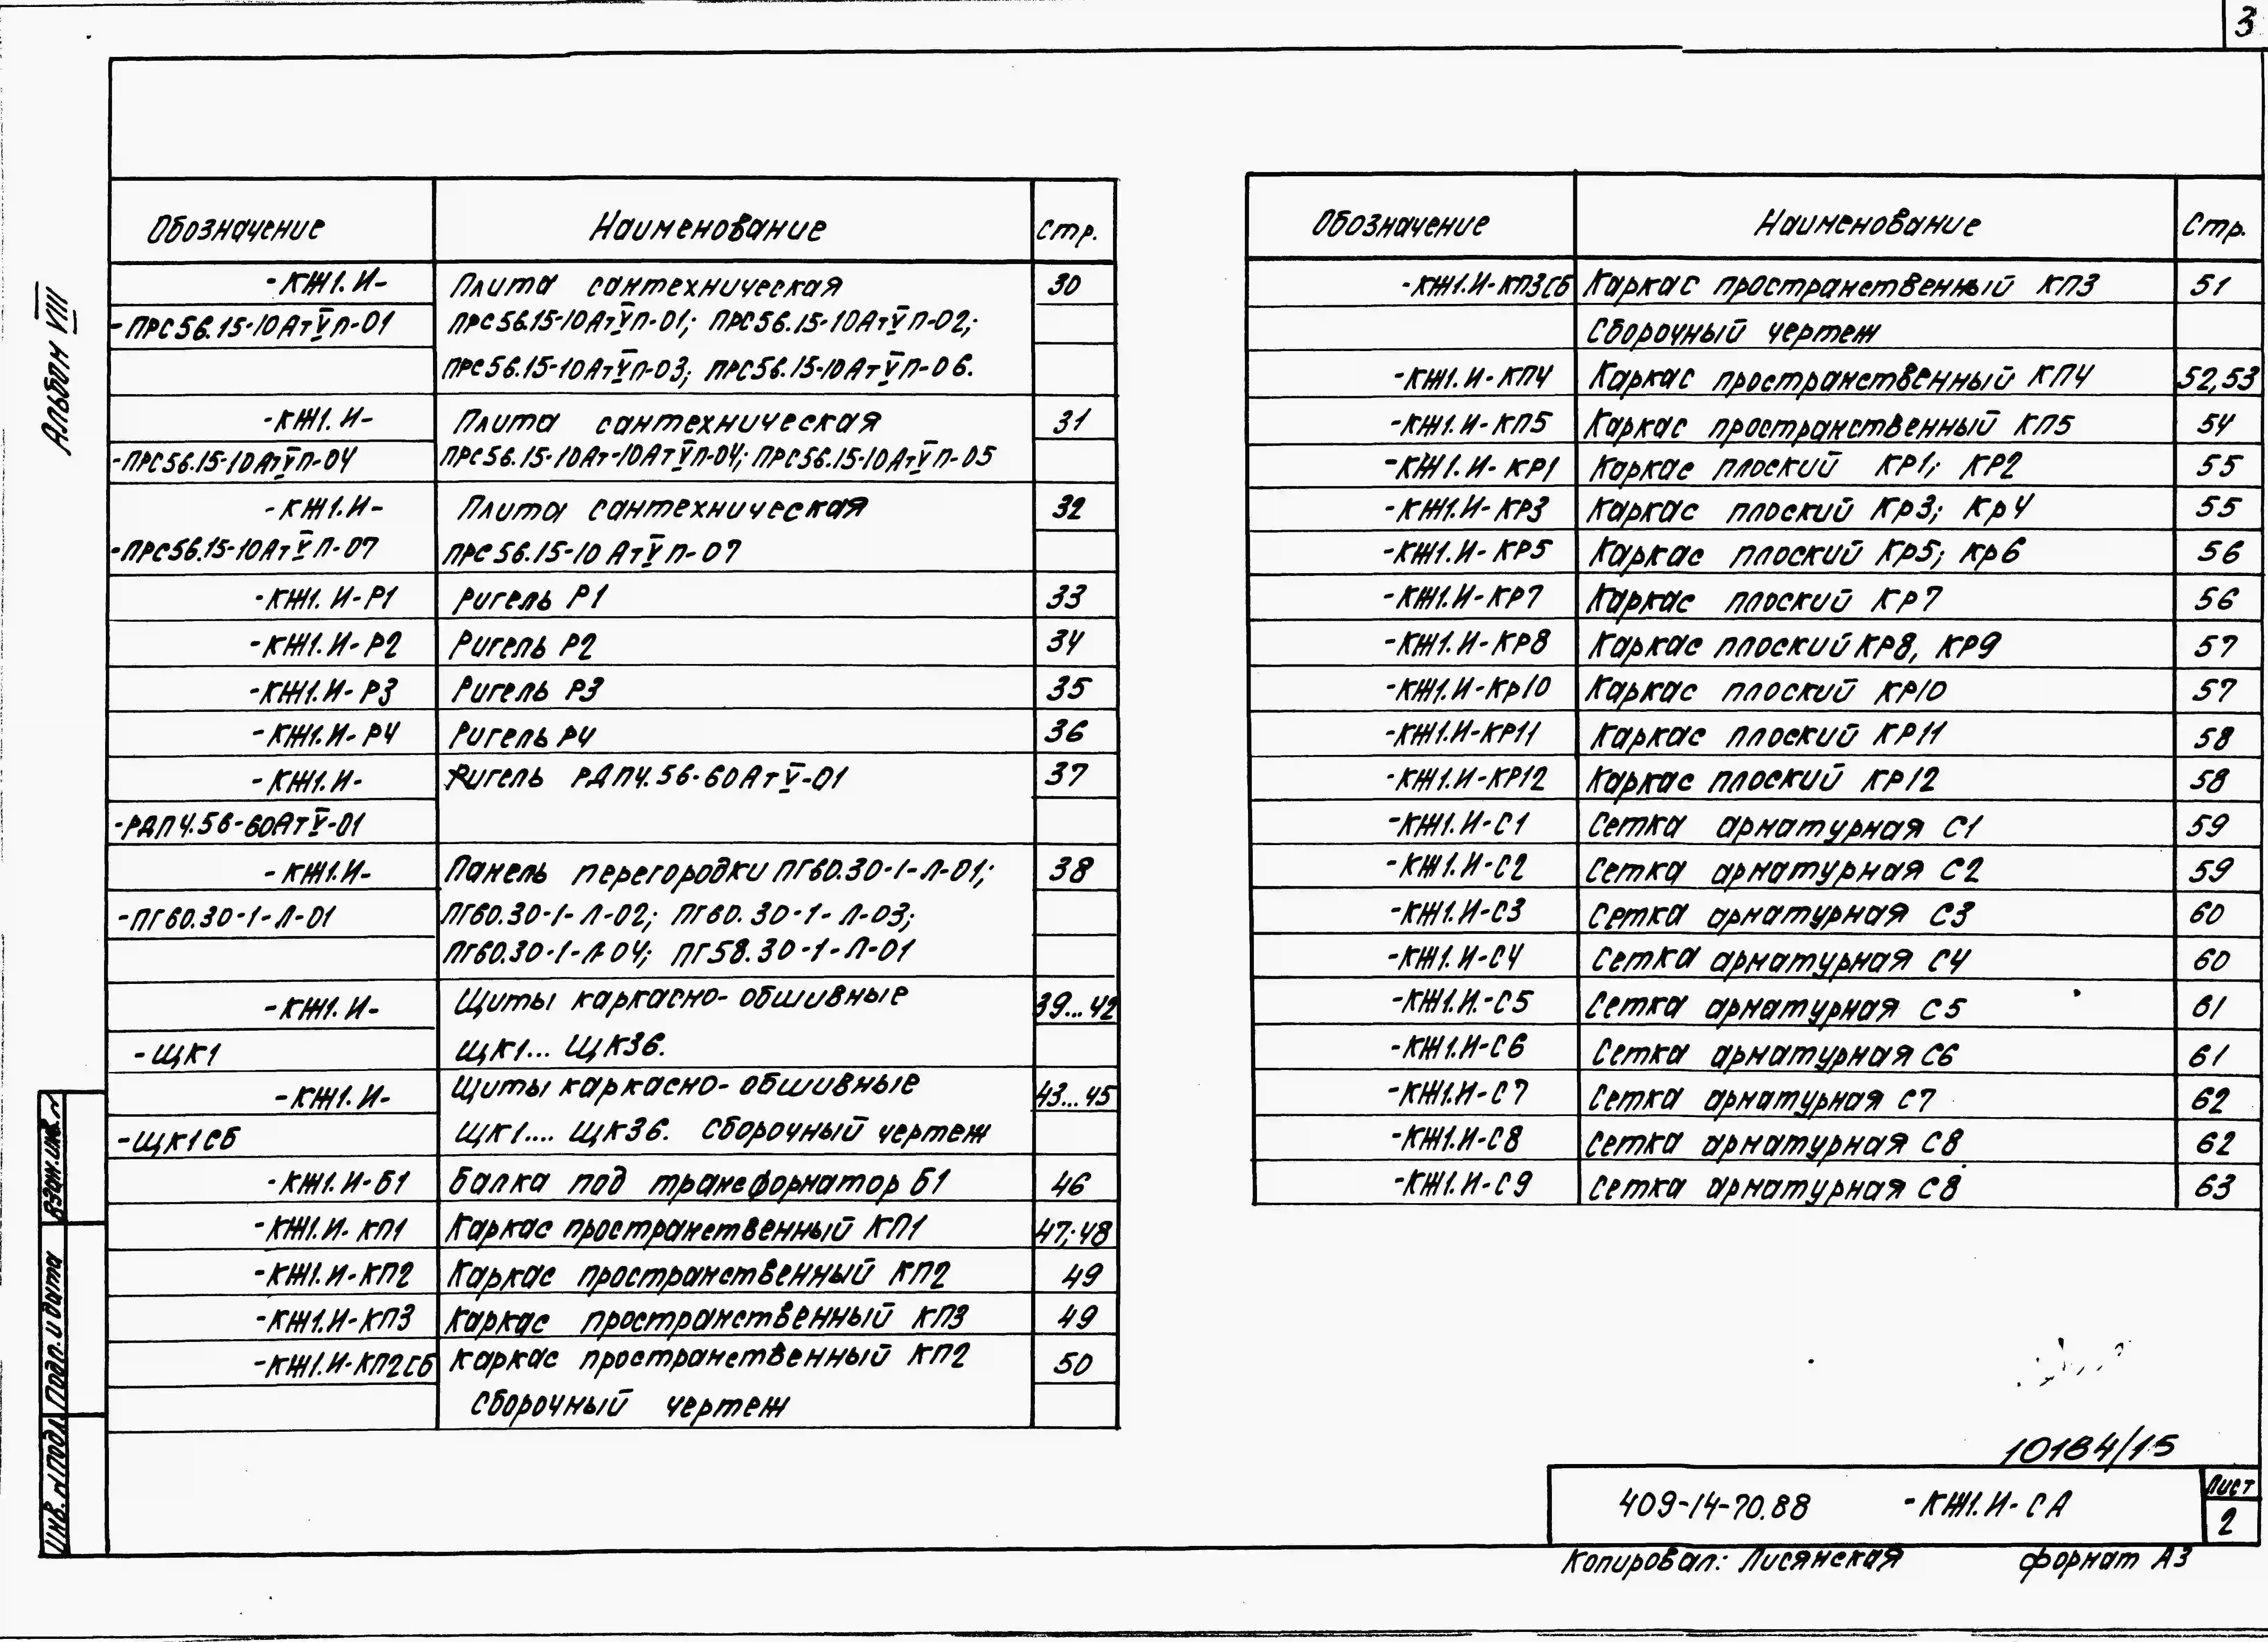 3
Альбом VIII
Обозначение Наименование Стр.
-КЖ1.И- Плита сантехническая 30
-ПРС56.15-10АтVП-01 ПРС56.15-10АтVП-01; ПРС56.15-10АтVП-02;
ПРС56.15-10АтVП-03; ПРС56.15-10АтVП-06.
-КЖ1.И- Плита сантехническая 31
-ПРС56.15-10АтVП-04 ПРС56.15-10Ат-10АтVП-04; ПРС56.15-10АтVП-05
-КЖ1.И- Плита сантехническая 32
-ПРС56.15-10АтVП-07 ПРС56.15-10АтVП-07
-КЖ1.И-Р1 Ригель Р1 33
-КЖ1.И-Р2 Ригель Р2 34
-КЖ1.И-Р3 Ригель Р3 35
-КЖ1.И-Р4 Ригель Р4 36
-КЖ1.И- Ригель РДП4.56-60АтV-01 37
-РДП4.56-60АтV-01
-КЖ1.И- Панель перегородки ПГ60.30-1-Л-01; 38
-ПГ60.30-1-Л-01 ПГ60.30-1-Л-02; ПГ60.30-1-Л-03;
ПГ60.30-1-Л-04; ПГ58.30-1-Л-01
-КЖ1.И- Щиты каркасно-обшивные 39...42
-ЩК1 ЩК1... ЩК36.
-КЖ1.И- Щиты каркасно-обшивные 43...45
-ЩК1СБ ЩК1.... ЩК36. Сборочный чертеж
-КЖ1.И-Б1 Балка под трансформатор Б1 46
-КЖ1.И-КП1 Каркас пространственный КП1 47;48
-КЖ1.И-КП2 Каркас пространственный КП2 49
-КЖ1.И-КП3 Каркас пространственный КП3 49
-КЖ1.И-КП2СБ Каркас пространственный КП2 50
Сборочный чертеж
Обозначение Наименование Стр.
-КЖ1.И-КП3СБ Каркас пространственный КП3 51
Сборочный чертеж
-КЖ1.И-КП4 Каркас пространственный КП4 52,53
-КЖ1.И-КП5 Каркас пространственный КП5 54
-КЖ1.И-КР1 Каркас плоский КР1; КР2 55
-КЖ1.И-КР3 Каркас плоский Кр3; Кр4 55
-КЖ1.И-КР5 Каркас плоский Кр5; кр6 56
-КЖ1.И-КР7 Каркас плоский КР7 56
-КЖ1.И-КР8 Каркас плоский КР8, КР9 57
-КЖ1.И-Кр10 Каркас плоский КР10 57
-КЖ1.И-КР11 Каркас плоский КР11 58
-КЖ1.И-КР12 Каркас плоский КР12 58
-КЖ1.И-С1 Сетка арматурная С1 59
-КЖ1.И-С2 Сетка арматурная С2 59
-КЖ1.И-С3 Сетка арматурная С3 60
-КЖ1.И-С4 Сетка арматурная С4 60
-КЖ1.И.-С5 Сетка арматурная С5 61
-КЖ1.И-С6 Сетка арматурная С6 61
-КЖ1.И-С7 Сетка арматурная С7 62
-КЖ1.И-С8 Сетка арматурная С8 62
-КЖ1.И-С9 Сетка арматурная С8 63
Взам.инв.№
Подп. и дата
Инв.№подл.
10184/15
409-14-70.88 -КЖ1.И-СА Лист
2
Копировал: Лисянская формат А3